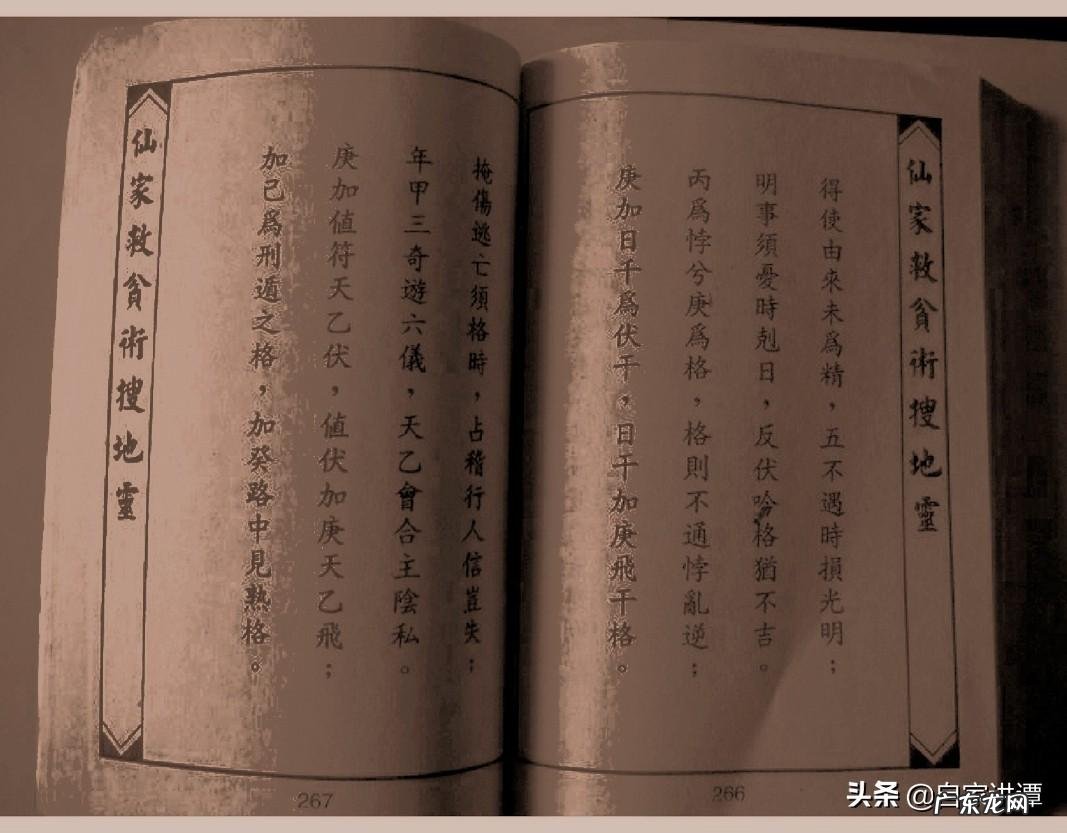 仙家救貧術搜地靈
得使由來未爲精，五不遇時損光明；
明事須憂時剋日，反伏吟格猶不吉。
丙爲悖兮庚爲格，格則不通悖亂逆；
庚加日干爲伏干，日干加庚飛干格。
266
掩傷逃亡須格時，占稽行人信豈失；
年甲三奇遊六儀，天乙會合主陰私。
庚加值符天乙伏，值伏加庚天乙飛；
加己爲刑遁之格，加癸路中見熟格。
仙家救貧術搜地靈
267
头条 @百家讲谭
广东龙网